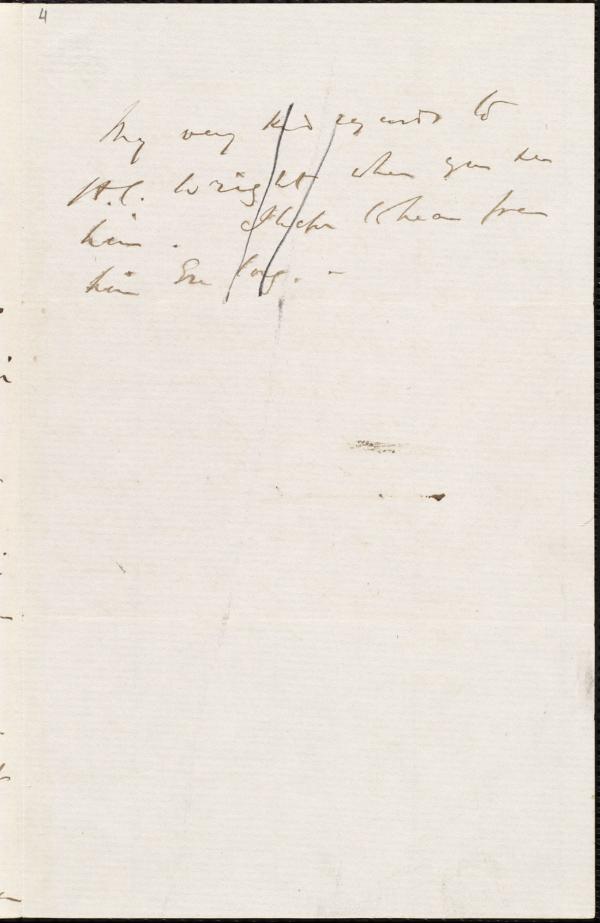 4
My very kind regards to
H.C. Wright when you see
him. I hope to hear from
him ere long. -